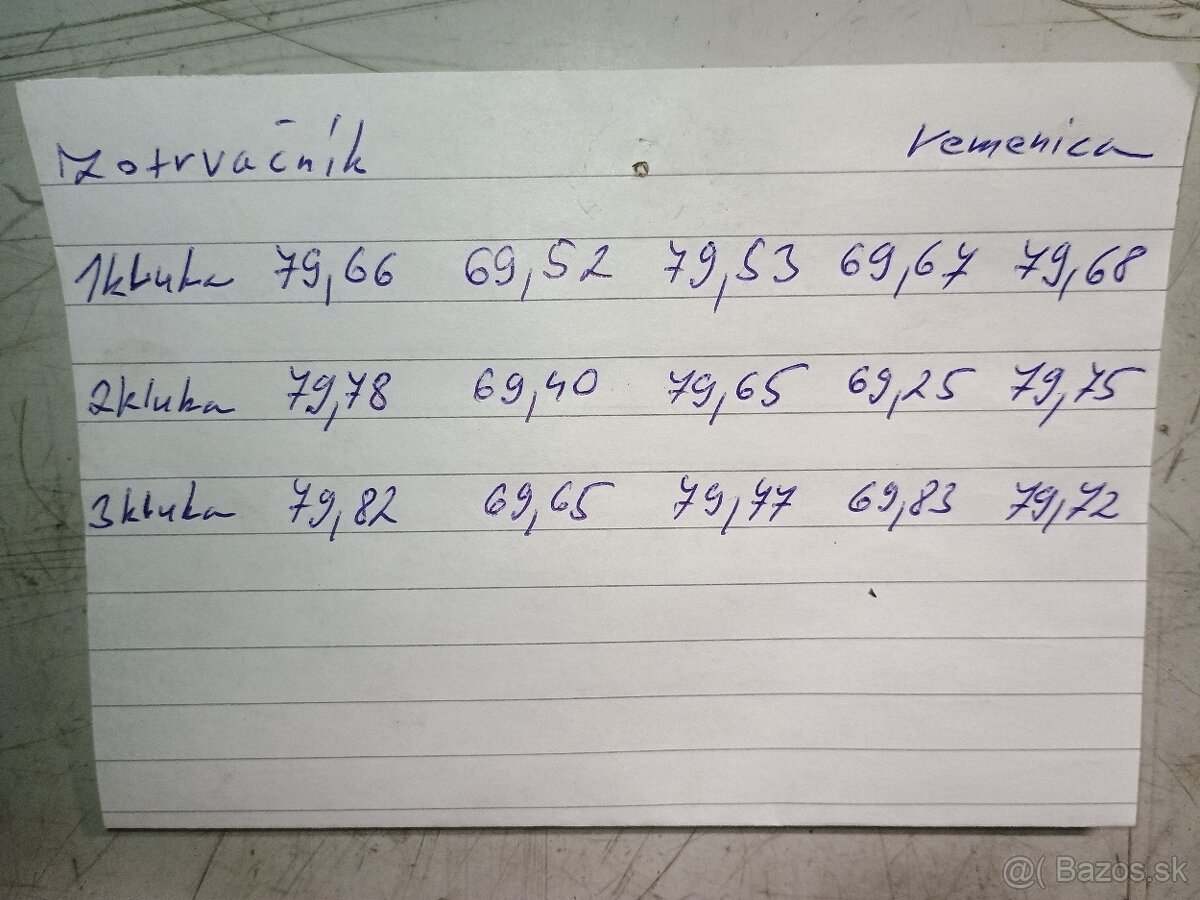 Zotrvačník remenica
1kluka 79,66 69,52 79,53 69,67 79,68
2kluka 79,78 69,40 79,65 69,25 79,75
3kluka 79,82 69,65 79,77 69,83 79,72
@( Bazos.sk